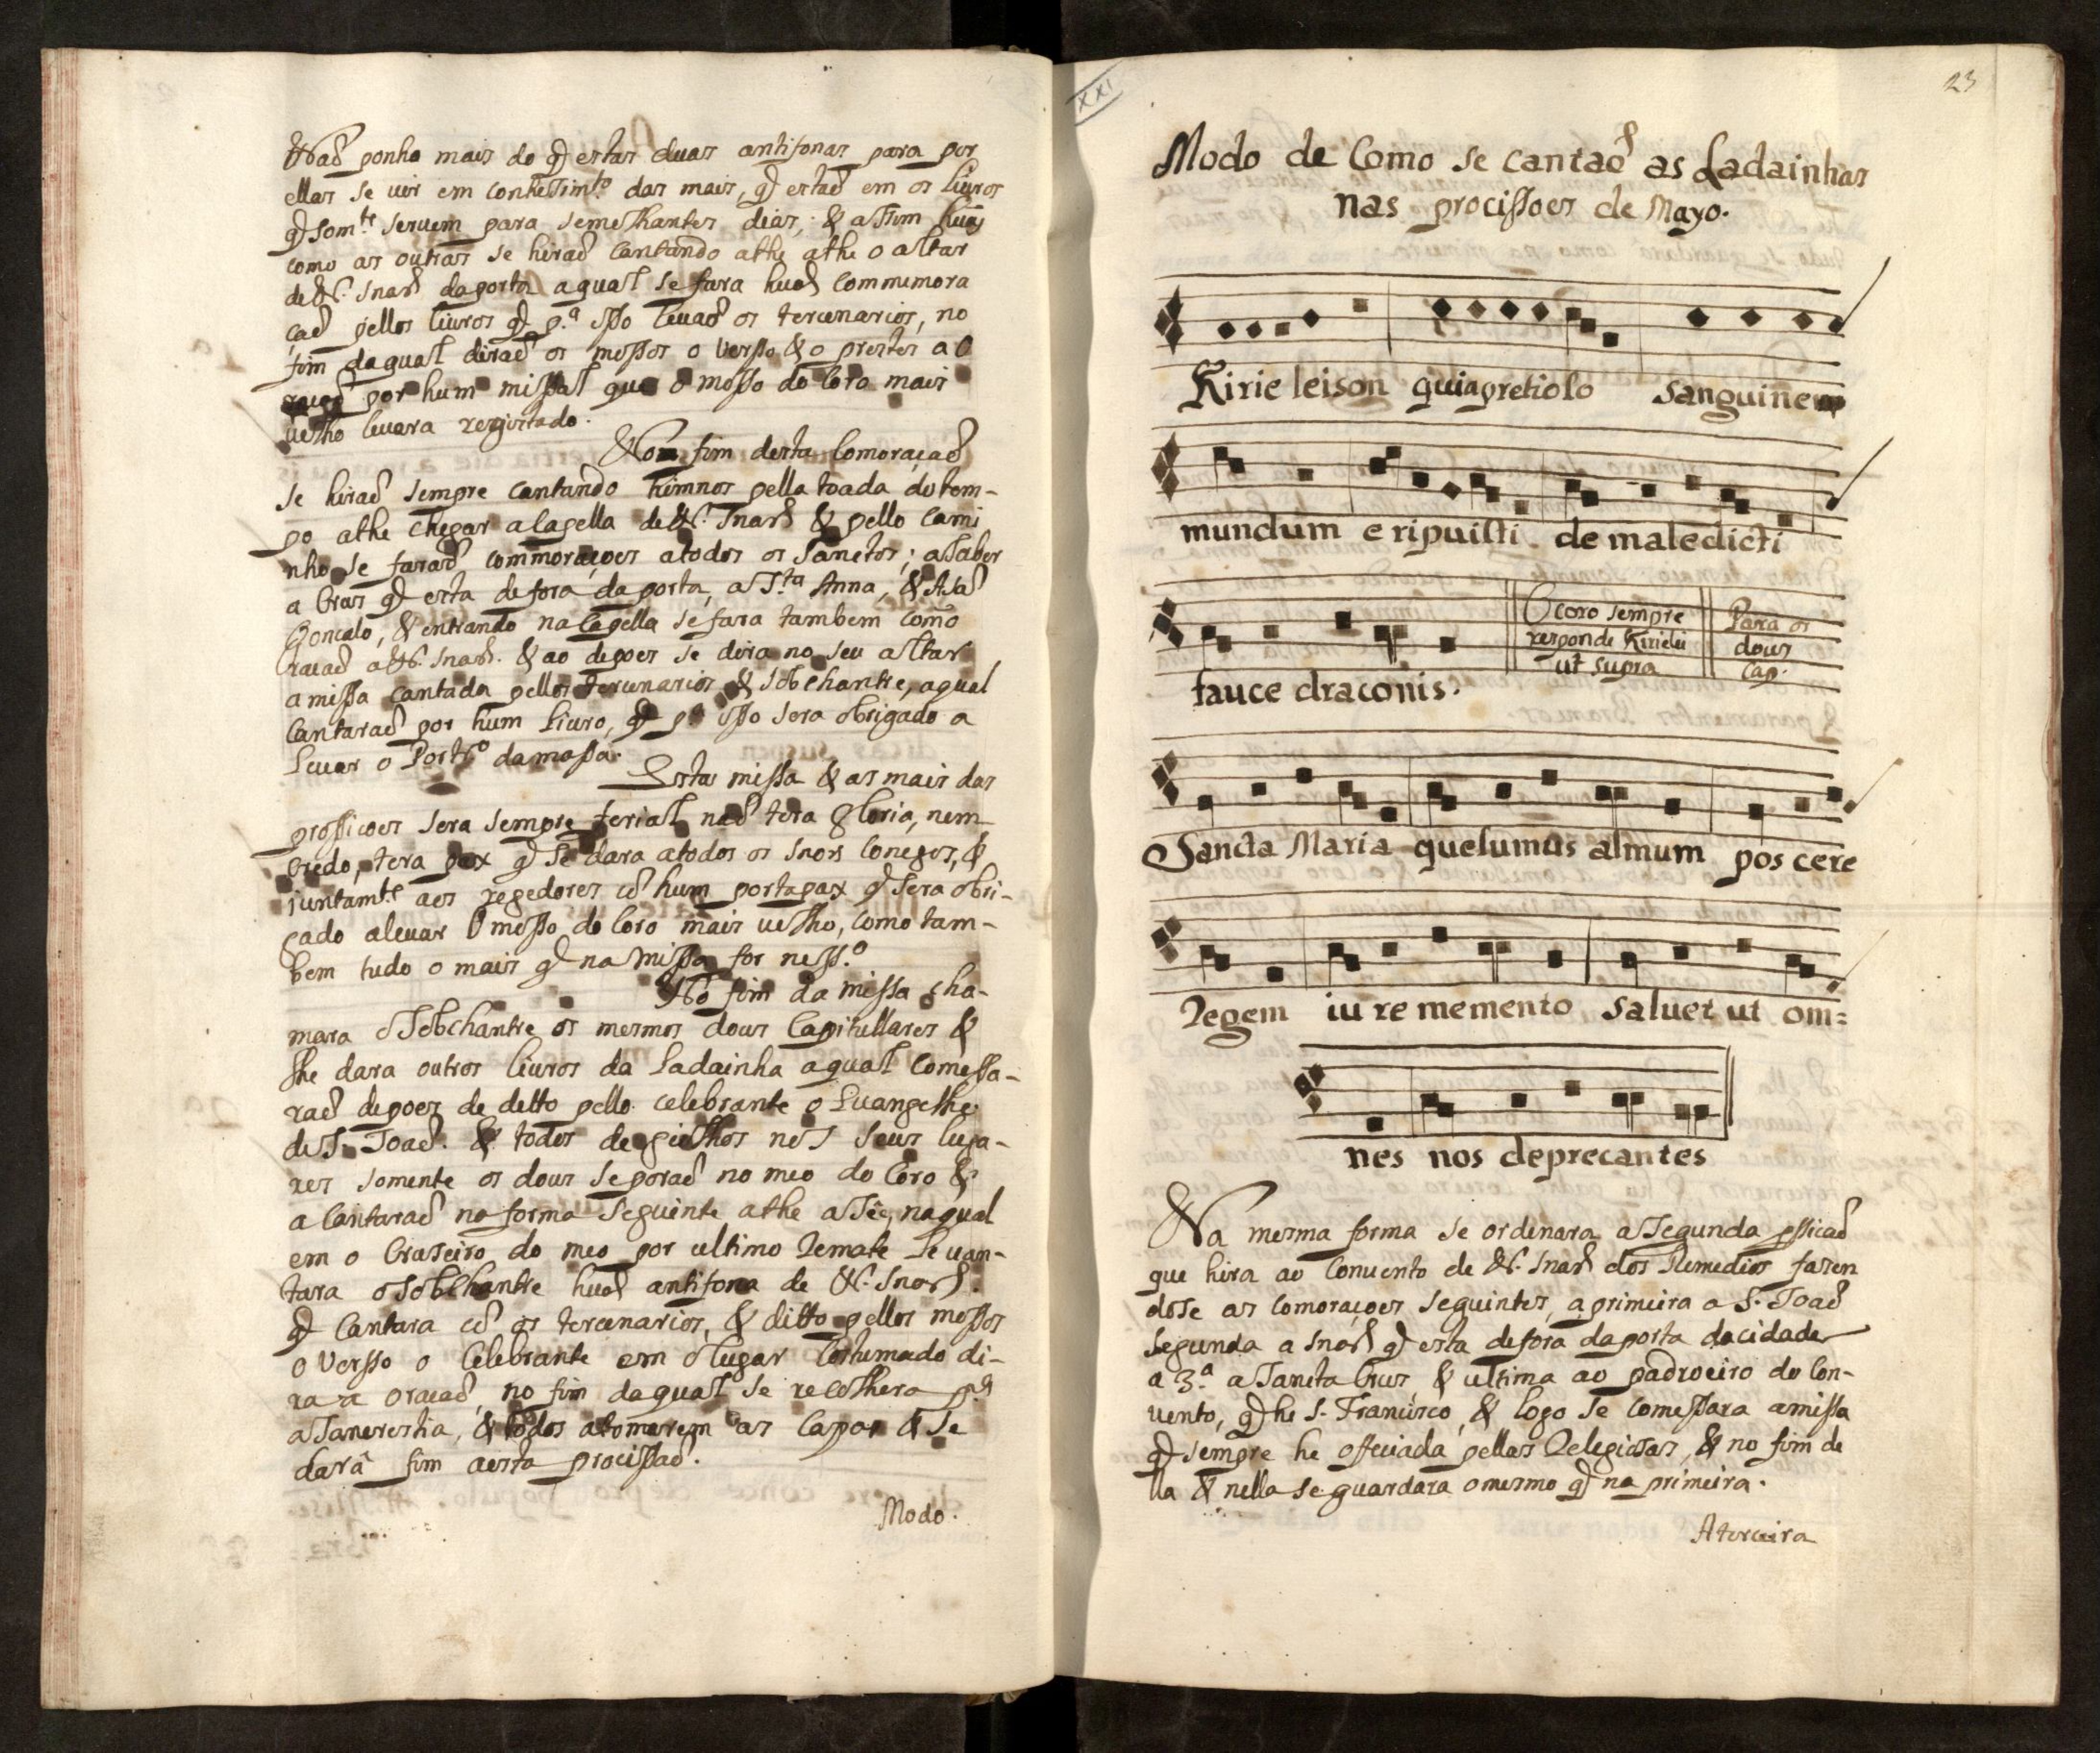 Naõ ponho mais do q̃ estas duas antifonas para por
ellas se uir em conhessim.to das mais, q̃ estaõ em os liuros
q̃ som.te seruem para semelhantes dias; & assim huãs
como as outras se hiraõ cantando athe athe o altar
de N. Snar̃ da porta a qual se fara huã commemora
çaõ pellos liuros q̃ p.a isso leuaõ os tercenarios, no
fim da qual diraõ os mossos o Versso & o prestes a O
raçaõ por hum missal que o mosso do Coro mais
uelho leuara registado.
No fim desta Comoraçaõ
se hiraõ sempre cantando himnos pella toada do tem-
po athe chegar a Capella de N. Snar̃ & pello cami
nho se faraõ commoraçoes a todos os Sanctos; a Saber
a bras q̃ esta de fora da porta, a S.ta Anna, & A Saõ
Gonçalo, & entrando na Capella se fara tambem como
raçaõ a N. Snar̃. & ao depoes se dira no seu altar
a missa cantada pellos tercenarios & Sobchantre, a qual
Cantaraõ por hum Liuro, q̃ p.a isso sera obrigado a
Leuar o Portr.o da massa.
Esta missa & as mais das
prossiçoes sera sempre ferial naõ tera Gloria, nem
Credo, tera pax q̃ se dara a todos os Snors Conegos, &
juntam.te aos regedores cõ hum portapax q̃ sera obri-
gado aleuar O mosso do Coro mais uelho, como tam-
bem tudo o mais q̃ na missa for ness.o
No fim da missa cha-
mara o Sobchantre os mesmos dous Capitullares &
lhe dara outros liuros da Ladainha a qual Comessa-
raõ depoes de detto pello celebrante o Euangelho
de S. Joaõ. & todos de gielhos nos seus luga-
res somente os dous se poraõ no meo do Coro &
a Cantaraõ na forma Seguinte athe a See, na qual
em o Craseiro do meo por ultimo Remate leuan-
tara o Sobchantre huã antifona de N. Snar̃.
q̃ Cantara cõ os tercenarios, & ditto pellos mossos
o Versso o Celebrante em o lugar Costumado di-
ra a oraçaõ, no fim da qual se recolhera p.a
a Sancrestia, & todos a tomarem as Capas & se
darâ fim a esta procissaõ.
Modo.
XXI
23
Modo de Como se cantaõ as Ladainhas
nas procissoes de Mayo.
Kirie leison quia pretiolo sanguine
mundum eripuisti de maledicti
fauce draconis.
O coro sempre
responde Kirielei
ut supra
Para os
dous
Cap.
Sancta Maria quesumus almum poscere
Regem iure memento saluet ut om=
nes nos deprecantes
Na mesma forma se ordenara a Segunda pssicaõ
que hira ao Conuento de N. Snar̃ dos Remedios fazen
dose as Comoraçoes seguintes, a primeira a S. Joaõ
segunda a Snar̃ q̃ esta defora da porta da cidade
a 3.a a Sancta Crus, & ultima ao padroeiro do Con-
uento, q̃ he S. Francisco, & logo se Comessara a missa
q̃ sempre he officiada pellas Relegiosas, & no fim de
lla & nella se guardara o mesmo q̃ na primeira.
A terceira